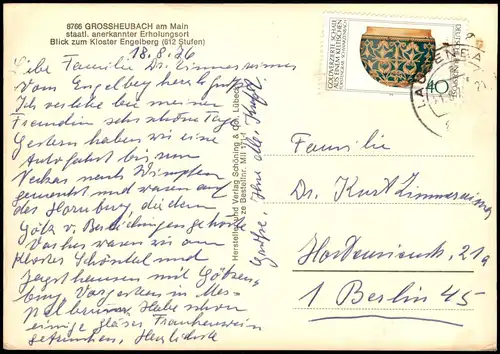 8766 GROSSHEUBACH am Main
staatl. anerkannter Erholungsort
Blick zum Kloster Engelberg (612 Stufen)
18.8.76
Liebe Familie Dr. Zimmermann
vom Engelberg herzl. Grüße
Ich verlebe bei meiner
Freundin sehr schöne Tage
Gestern haben wir eine
Autofahrt bis zum
Neckar nach Wimpfen
gemacht und waren auf
der Hornburg, die dem
Götz v. Berlichingen gehörte
Vorher waren wir am
Kloster Schöntal und
Jagsthausen mit Götzen-
burg. Vorgestern in Mes-
pelbrunn. Habe schon
einige Gläser Frankenwein
getrunken. Herzlichste
Grüße, Ihre alte
Herstellung und Verlag Schöning & Co., Lübeck
Bestellnr. Mil 1754
GOLDVERZIERTE SCHALE
AUS EINEM KELTISCHEN
40
Familie
Dr. Kurt Zimmermann
21a
1 Berlin 45